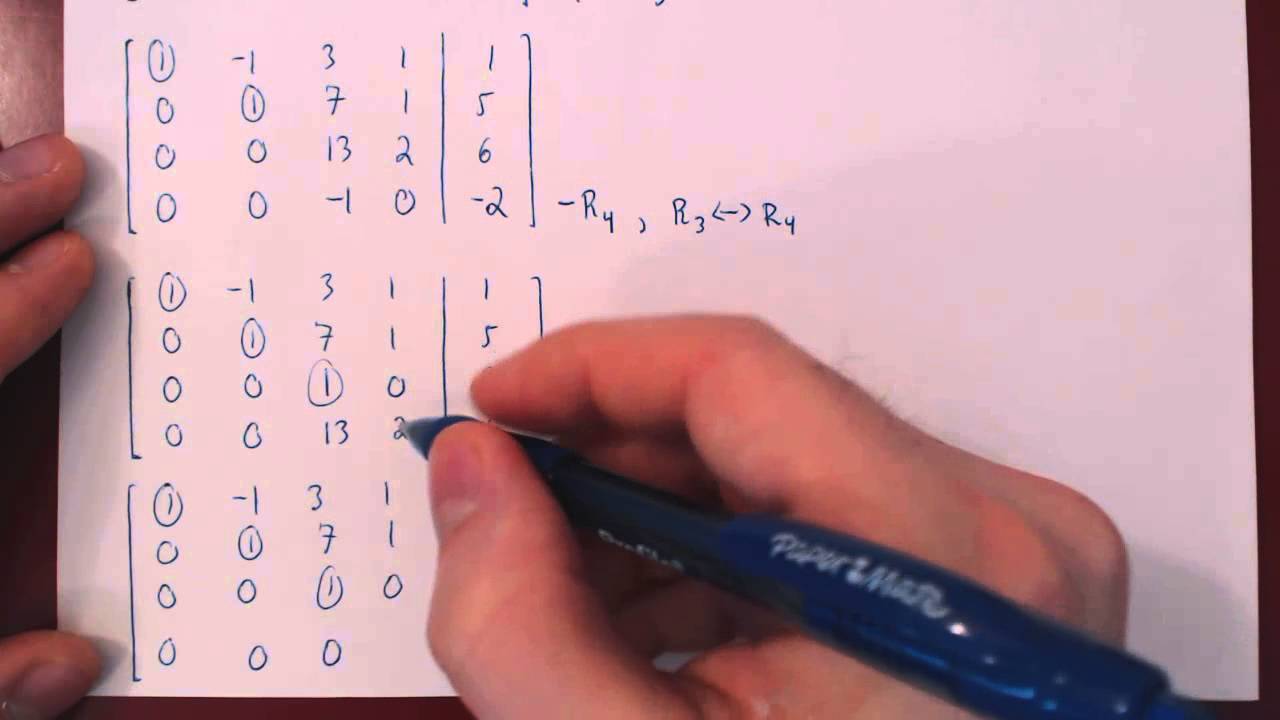 1 -1 3 1 | 1
0 1 7 1 | 5
0 0 13 2 | 6
0 0 -1 0 | -2 -R4 , R3 <-> R4
1 -1 3 1 | 1
0 1 7 1 | 5
0 0 1 0
0 0 13 2
1 -1 3 1
0 1 7 1
0 0 1 0
0 0 0
PaperMate